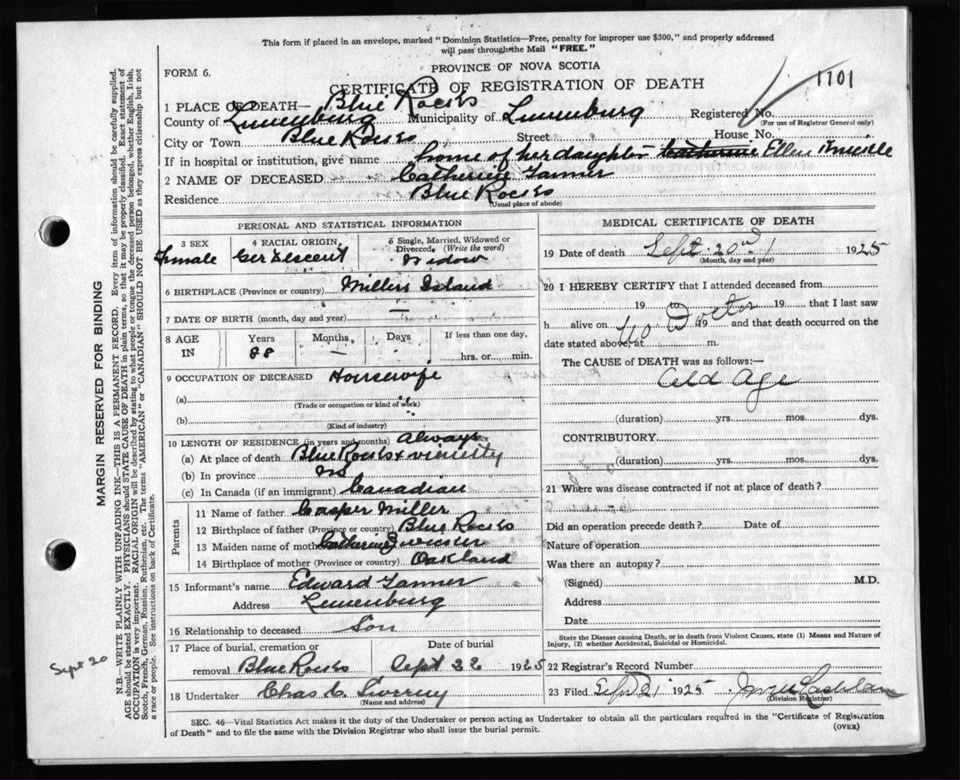 This form if placed in an envelope, marked "Dominion Statistics—Free, penalty for improper use $300," and properly addressed
will pass through the Mail "FREE."
PROVINCE OF NOVA SCOTIA
FORM 6.
CERTIFICATE OF REGISTRATION OF DEATH
1101
1 PLACE OF DEATH— Blue Rocks
County of Lunenburg Municipality of Lunenburg Registered No.
(For use of Registrar General only)
City or Town Blue Rocks Street House No.
If in hospital or institution, give name home of her daughter Catherine Ellen Knickle
2 NAME OF DECEASED Catherine Tanner
Residence Blue Rocks
(Usual place of abode)
PERSONAL AND STATISTICAL INFORMATION
3 SEX 4 RACIAL ORIGIN 5 Single, Married, Widowed or
Divorced. (Write the word)
Female Ger Descent Widow
6 BIRTHPLACE (Province or country) Millers Island
7 DATE OF BIRTH (month, day and year) —
8 AGE IN Years Months Days If less than one day,
88 — — hrs. or min.
9 OCCUPATION OF DECEASED Housewife
(a)
(Trade or occupation or kind of work)
(b)
(Kind of industry)
10 LENGTH OF RESIDENCE (in years and months) Always
(a) At place of death Blue Rocks & vicinity
(b) In province NS
(c) In Canada (if an immigrant) Canadian
Parents
11 Name of father Casper Miller
12 Birthplace of father (Province or country) Blue Rocks
13 Maiden name of mother Catherine
14 Birthplace of mother (Province or country) Oakland
15 Informant's name Edward Tanner
Address Lunenburg
16 Relationship to deceased Son
17 Place of burial, cremation or Date of burial
removal Blue Rocks Sept 22 1925
18 Undertaker Chas C. Sweeny
(Name and address)
MEDICAL CERTIFICATE OF DEATH
19 Date of death Sept 20 1925
(Month, day and year)
20 I HEREBY CERTIFY that I attended deceased from
19 to 19 that I last saw
h alive on No Doctor 19 and that death occurred on the
date stated above, at m.
The CAUSE of DEATH was as follows:—
Old Age
(duration) yrs. mos. dys.
CONTRIBUTORY
(duration) yrs. mos. dys.
21 Where was disease contracted if not at place of death?
Did an operation precede death? Date of
Nature of operation
Was there an autopsy?
(Signed) M.D.
Address
Date
State the Disease causing Death, or in death from Violent Causes, state (1) Means and Nature of
Injury, (2) whether Accidental, Suicidal or Homicidal.
22 Registrar's Record Number
23 Filed Sept 21 1925
(Division Registrar)
SEC. 46—Vital Statistics Act makes it the duty of the Undertaker or person acting as Undertaker to obtain all the particulars required in the "Certificate of Registration
of Death" and to file the same with the Division Registrar who shall issue the burial permit.
(OVER)
MARGIN RESERVED FOR BINDING
N.B.—WRITE PLAINLY WITH UNFADING INK—THIS IS A PERMANENT RECORD. Every item of information should be carefully supplied.
AGE should be stated EXACTLY. PHYSICIANS should STATE CAUSE OF DEATH in plain terms, so that it may be properly classified. Exact statement of
OCCUPATION is very important. RACIAL ORIGIN will be described by stating to what people or tongue the deceased person belonged, whether English, Irish,
Scotch, French, German, Russian, Ruthenian, etc. The terms "AMERICAN" or "CANADIAN" SHOULD NOT BE USED as they express citizenship but not
a race or people. See instructions on back of Certificate.
Sept 20